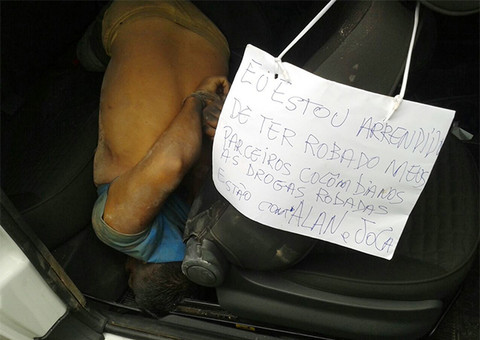 EU ESTOU ARRENDIDO
DE TER ROBADO MEUS
PARCEIROS COCOMBIANOS
AS DROGAS ROBADAS
ESTÃO COM ALAN e JOCA